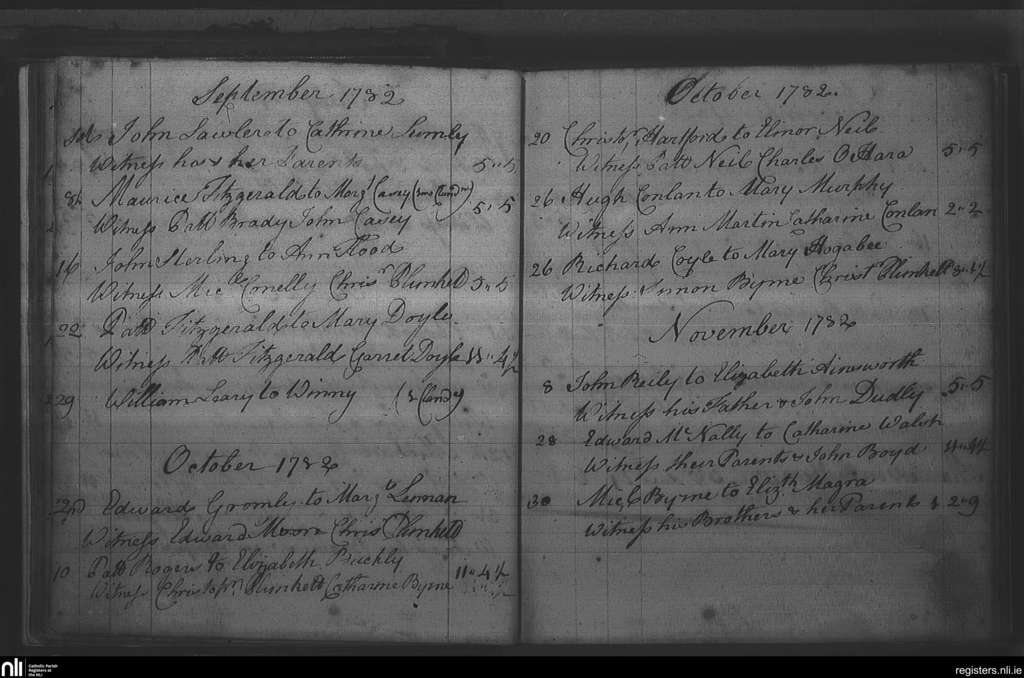 September 1782
1st John Lawlers to Cathrine Lumly
Witness his & her Parents 5" 5
8th Maurice Fitzgerald to Marg.t Cavey
Witness Patt Brady John Cavey 5" 5
16 John Sterling to Ann Flood
Witness Mic Conelly Chris.r Plunkett 5" 5
22 Patt Fitzgerald to Mary Doyle
Witness Fitzgerald Garret Doyle 11" 4½
29 William Leary to Winny
October 1782
2nd Edward to Marg.t Lennan
Witness Edward Moore Chris.r Plunkett
10 Patt Rogers to Elizabeth Buckly 11" 4½
Witness Christop.r Plunkett Catharine Byrne
October 1782.
20 Christ.r Hartford to Elinor Neil
Witness Patt Neil Charles O Hara 5" 5
26 Hugh Conlan to Mary Murphy
Witness Ann Martin Catharine Conlan 2" 2
26 Richard Coyle to Mary Hogabee
Witness Simon Byrne Christ.r Plunkett
November 1782
8 John Reily to Elizabeth Ainsworth
Witness his Father & John Dudly 5" 5
28 Edward McNally to Catharine Walsh
Witness their Parents & John Boyd 11" 4½
30 Mic.l Byrne to Eliz.th Magra
Witness his Brothers & her Parents & 2" 9
nli
Catholic Parish
Registers at
the NLI
registers.nli.ie